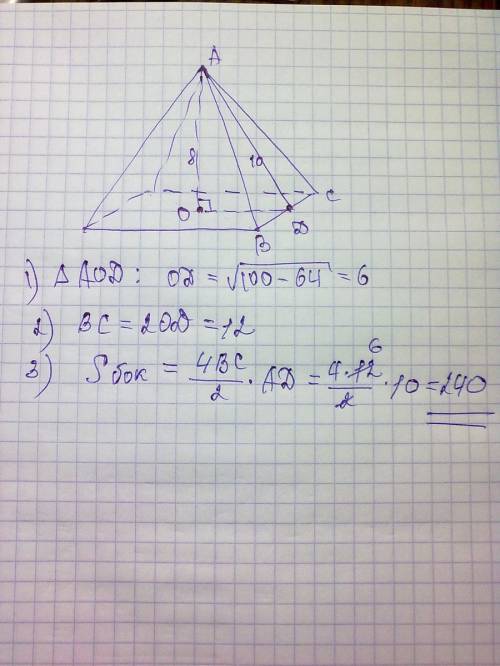 A
8
10
O
C
B
D
1) Δ AOD: OD = √100 - 64 = 6
2) BC = 2OD = 12
3) Sбок = 4BC/2 · AD = 4·12/2 · 10 = 240
6